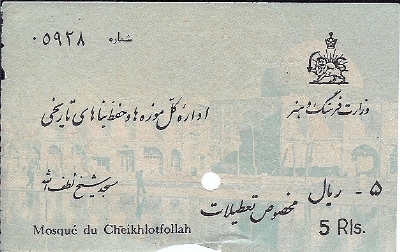 شماره ۰۵۹۲۸
وزارت فرهنگ و هنر
اداره کل موزه ها و حفظ بناهای تاریخی
مسجد شیخ لطف الله
۵- ریال
مخصوص تعطیلات
Mosqué du Cheikhlotfollah
5 Rls.